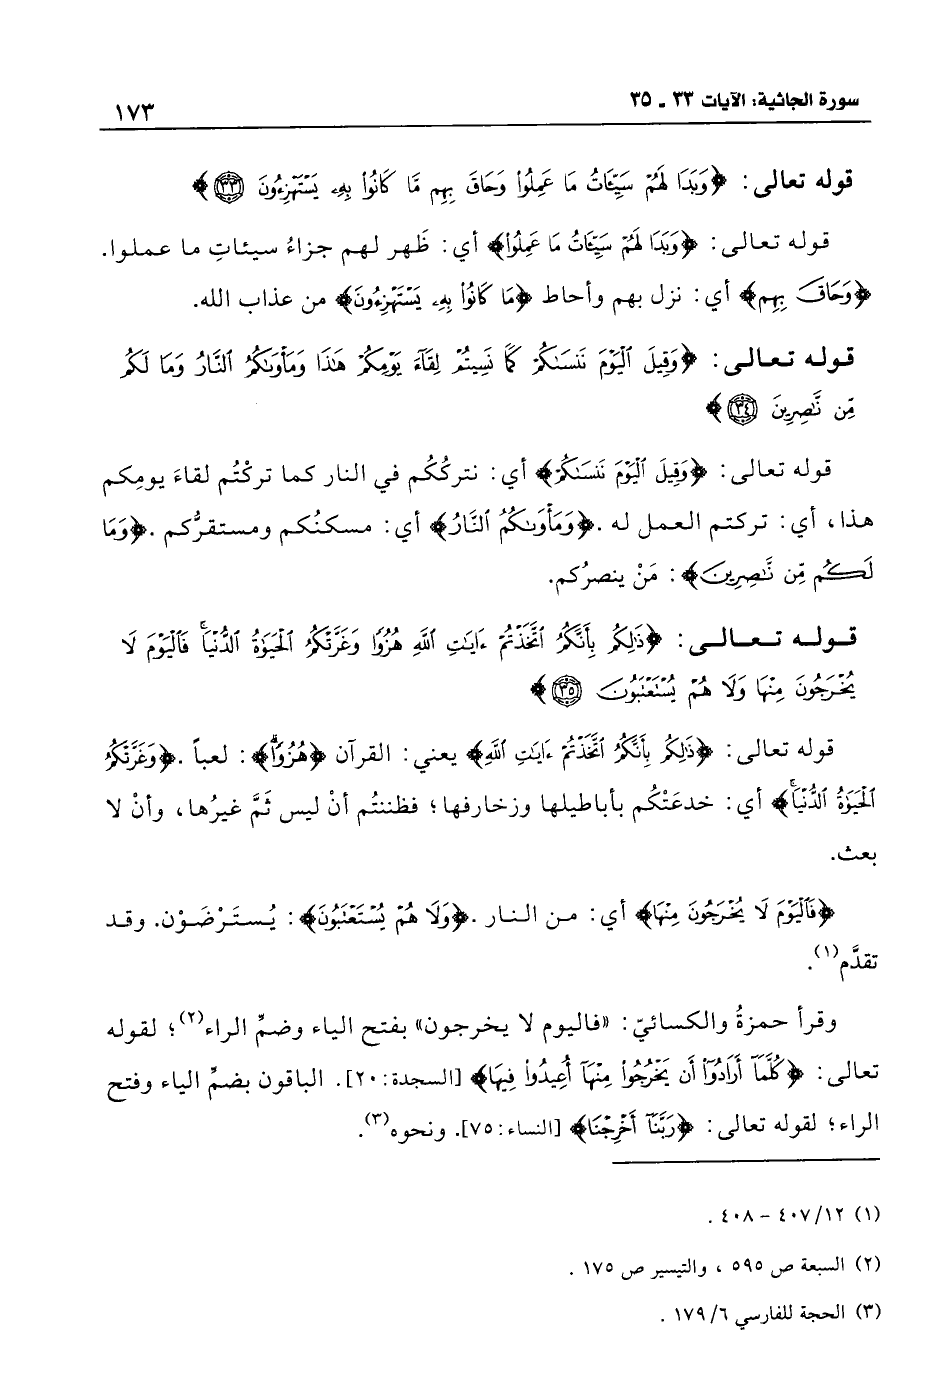 سورة الجاثية: الآيات ٣٣ - ٣٥
١٧٣
قوله تعالى: ﴿وَبَدَا لَهُمْ سَيِّئَاتُ مَا عَمِلُوا۟ وَحَاقَ بِهِم مَّا كَانُوا۟ بِهِۦ يَسْتَهْزِءُونَ ٣٣﴾
قوله تعالى: ﴿وَبَدَا لَهُمْ سَيِّئَاتُ مَا عَمِلُوا۟﴾ أي: ظَهر لهم جزاءُ سيئاتِ ما عملوا.
﴿وَحَاقَ بِهِم﴾ أي: نزل بهم وأحاط ﴿مَا كَانُوا۟ بِهِۦ يَسْتَهْزِءُونَ﴾ من عذاب الله.
قوله تعالى: ﴿وَقِيلَ ٱلْيَوْمَ نَنسَىٰكُمْ كَمَا نَسِيتُمْ لِقَآءَ يَوْمِكُمْ هَٰذَا وَمَأْوَىٰكُمُ ٱلنَّارُ وَمَا لَكُم
مِّن نَّٰصِرِينَ ٣٤﴾
قوله تعالى: ﴿وَقِيلَ ٱلْيَوْمَ نَنسَىٰكُمْ﴾ أي: نتركُكُم في النار كما تركْتُم لقاءَ يومِكم
هذا، أي: تركتم العمل له. ﴿وَمَأْوَىٰكُمُ ٱلنَّارُ﴾ أي: مسكنُكم ومستقرُّكم. ﴿وَمَا
لَكُم مِّن نَّٰصِرِينَ﴾: مَنْ ينصرُكم.
قوله تعالى: ﴿ذَٰلِكُم بِأَنَّكُمُ ٱتَّخَذْتُمْ ءَايَٰتِ ٱللَّهِ هُزُوًا وَغَرَّتْكُمُ ٱلْحَيَوٰةُ ٱلدُّنْيَا ۚ فَٱلْيَوْمَ لَا
يُخْرَجُونَ مِنْهَا وَلَا هُمْ يُسْتَعْتَبُونَ ٣٥﴾
قوله تعالى: ﴿ذَٰلِكُم بِأَنَّكُمُ ٱتَّخَذْتُمْ ءَايَٰتِ ٱللَّهِ﴾ يعني: القرآن ﴿هُزُوًا﴾: لعباً. ﴿وَغَرَّتْكُمُ
ٱلْحَيَوٰةُ ٱلدُّنْيَا ۚ﴾ أي: خدعَتْكُم بأباطيلها وزخارفها؛ فظننتُم أنْ ليس ثَمَّ غيرُها، وأنْ لا
بعث.
﴿فَٱلْيَوْمَ لَا يُخْرَجُونَ مِنْهَا﴾ أي: من النار. ﴿وَلَا هُمْ يُسْتَعْتَبُونَ﴾: يُستَرْضَوْن. وقد
تقدَّم(١).
وقرأ حمزةُ والكسائيّ: «فاليوم لا يخرجون» بفتح الياء وضمِّ الراء(٢)؛ لقوله
تعالى: ﴿كُلَّمَآ أَرَادُوٓا۟ أَن يَخْرُجُوا۟ مِنْهَآ أُعِيدُوا۟ فِيهَا﴾ [السجدة: ٢٠]. الباقون بضمِّ الياء وفتح
الراء؛ لقوله تعالى: ﴿رَبَّنَآ أَخْرِجْنَا﴾ [النساء: ٧٥]. ونحوه(٣).
(١) ١٢/ ٤٠٧ - ٤٠٨ .
(٢) السبعة ص ٥٩٥ ، والتيسير ص ١٧٥ .
(٣) الحجة للفارسي ٦/ ١٧٩ .